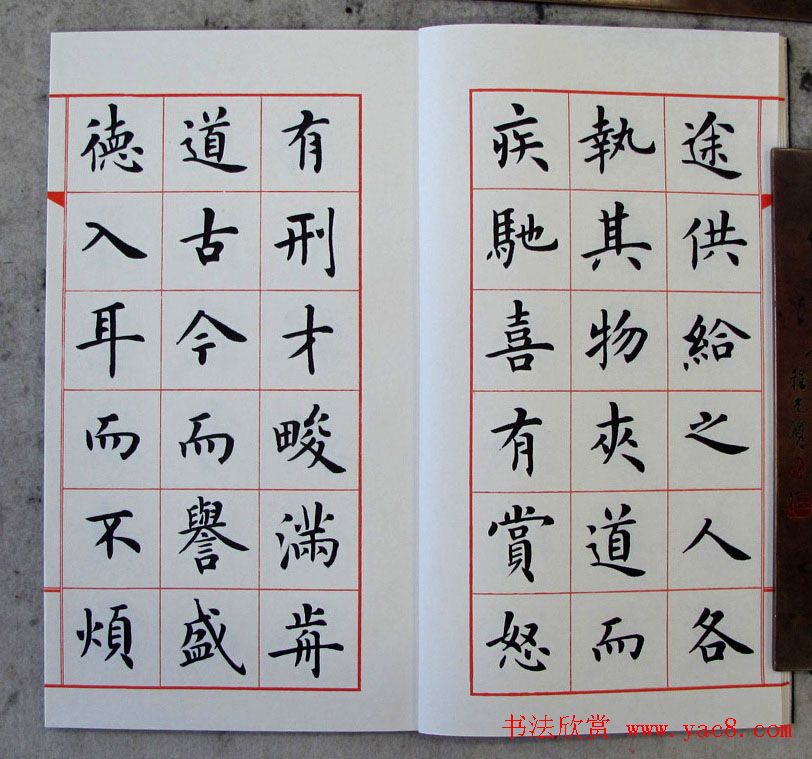 途供給之人各
執其物夾道而
疾馳喜有賞怒
有刑才畯滿歬
道古今而譽盛
徳入耳而不煩
书法欣赏 www.yac8.com